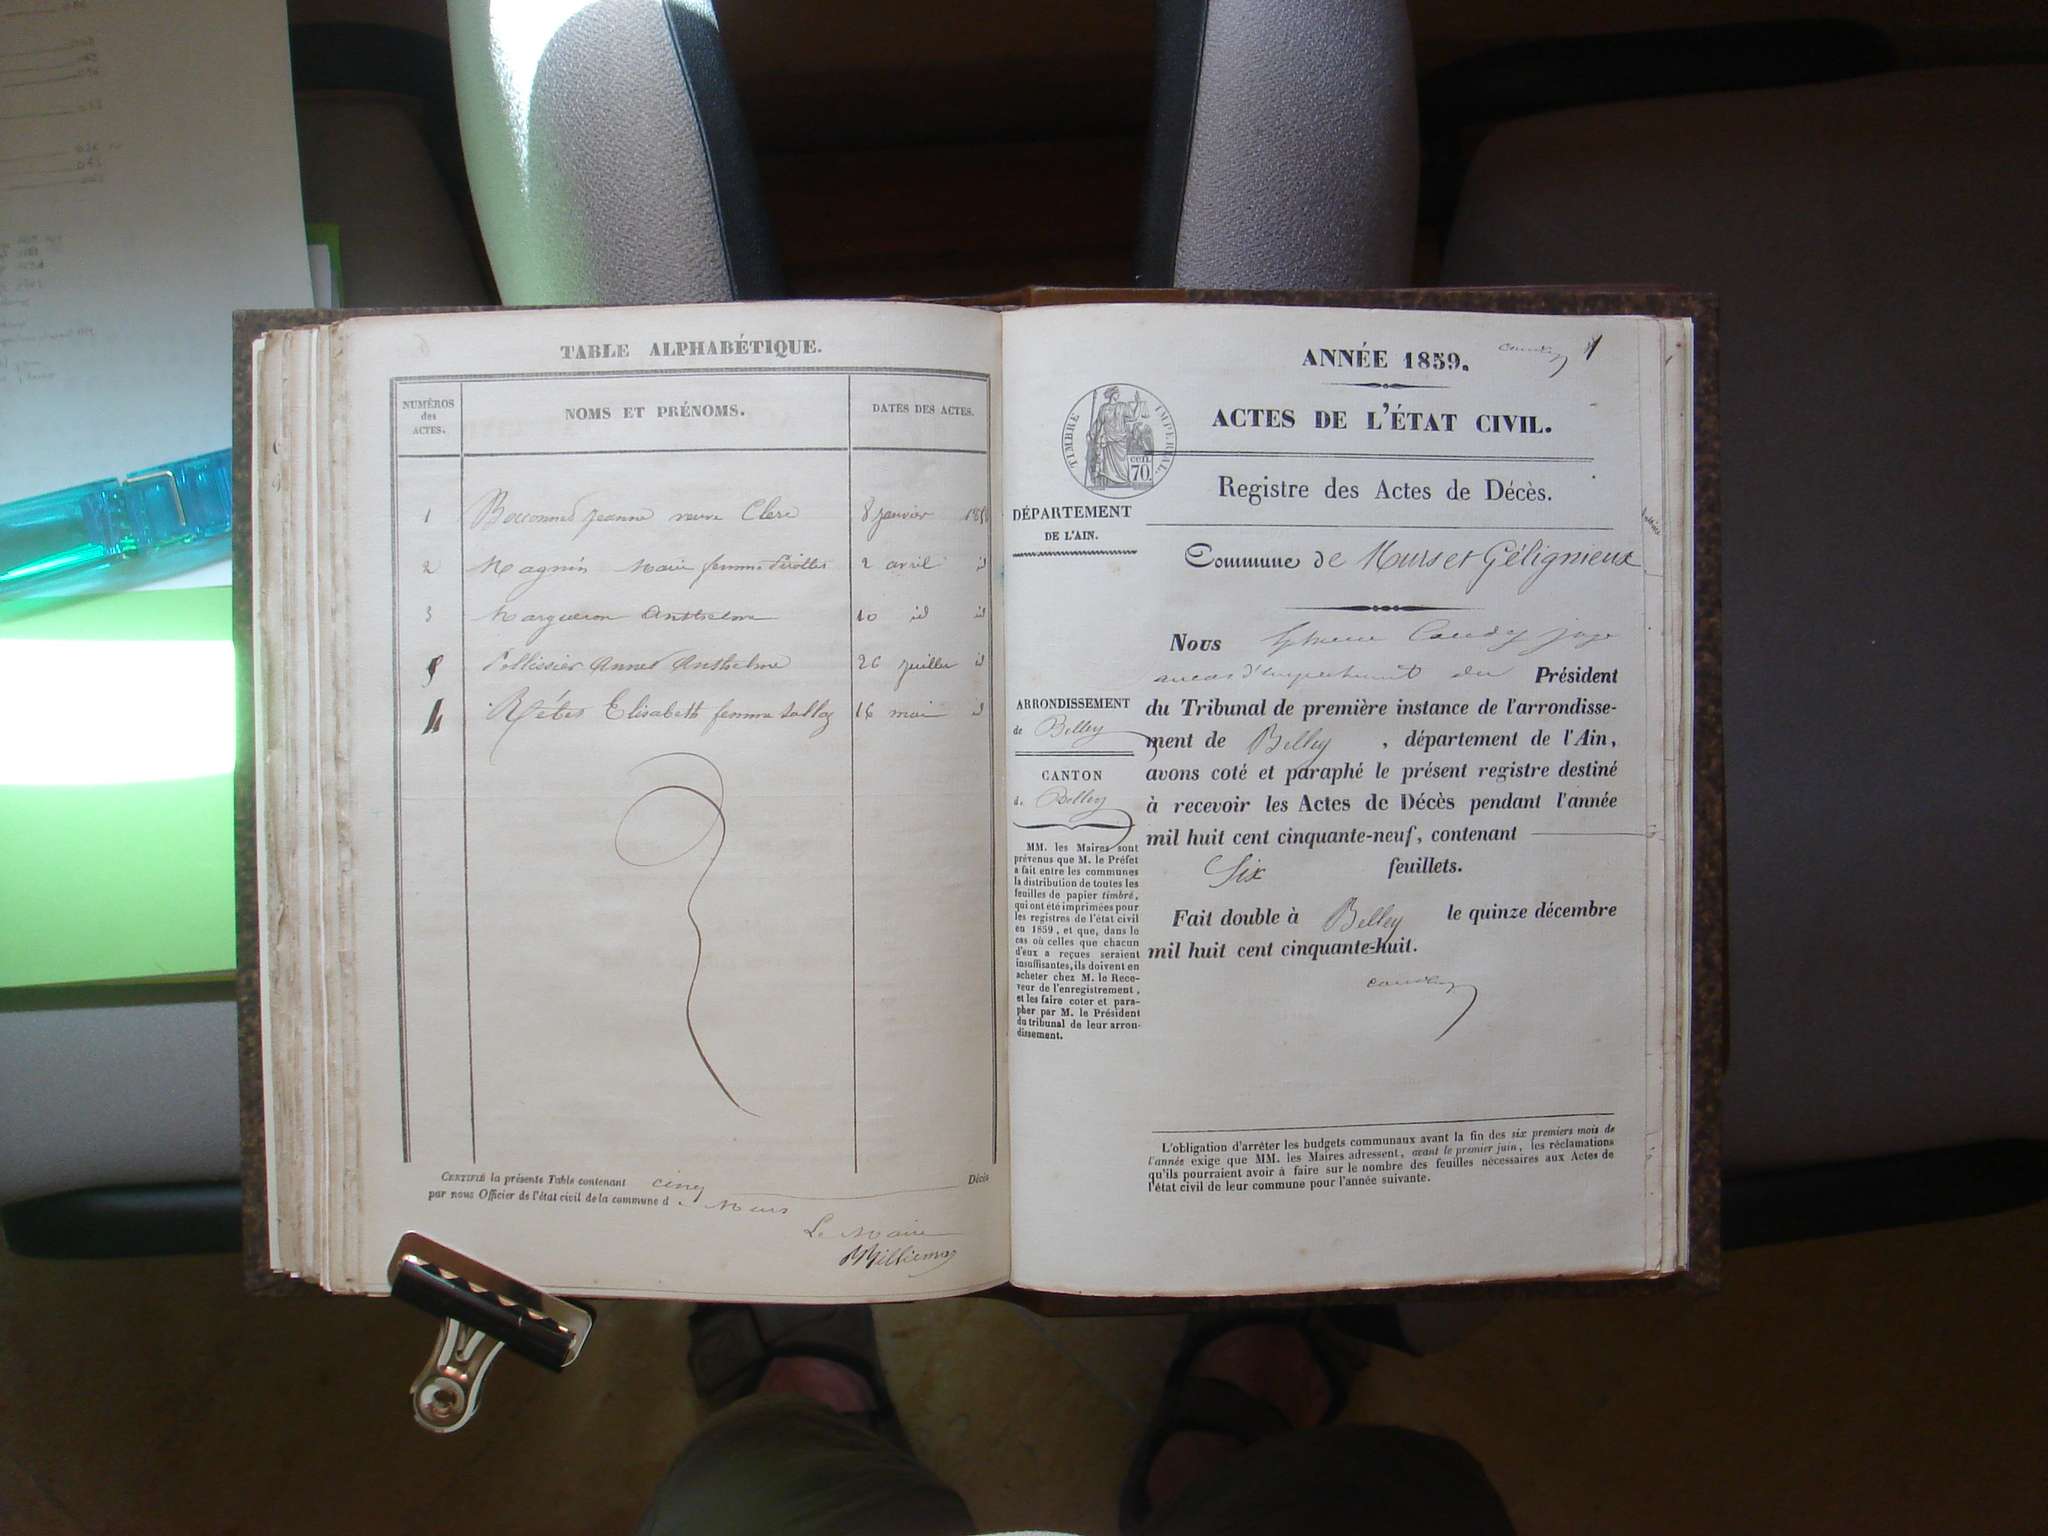 TABLE ALPHABÉTIQUE.
NUMÉROS des ACTES.
NOMS ET PRÉNOMS.
DATES DES ACTES.
1 Jeanne veuve Clerc 8 janvier
2 Magnin Marie femme 2 avril id
3 Margueron Anthelme 10 id id
5 Pellissier Annet Anthelme 26 juillet id
4 Elisabeth femme 16 mai id
CERTIFIÉ la présente Table contenant cinq Décès
par nous Officier de l'état civil de la commune d e Murs
Le Maire
Milliemaz
1
ANNÉE 1859.
TIMBRE IMPÉRIAL.
cen.
70.
ACTES DE L'ÉTAT CIVIL.
Registre des Actes de Décès.
DÉPARTEMENT
DE L'AIN.
Commune de Murs et Gélignieux
Nous Caudy juge
au cas d'empêchement du Président
du Tribunal de première instance de l'arrondisse-
ment de Belley, département de l'Ain,
avons coté et paraphé le présent registre destiné
à recevoir les Actes de Décès pendant l'année
mil huit cent cinquante-neuf, contenant
Six feuillets.
Fait double à Belley le quinze décembre
mil huit cent cinquante-huit.
Caudy
ARRONDISSEMENT
de Belley
CANTON
de Belley
MM. les Maires sont
prévenus que M. le Préfet
a fait entre les communes
la distribution de toutes les
feuilles de papier timbré,
qui ont été imprimées pour
les registres de l'état civil
en 1859, et que, dans le
cas où celles que chacun
d'eux a reçues seraient
insuffisantes, ils doivent en
acheter chez M. le Rece-
veur de l'enregistrement,
et les faire coter et para-
pher par M. le Président
du tribunal de leur arron-
dissement.
L'obligation d'arrêter les budgets communaux avant la fin des six premiers mois de
l'année exige que MM. les Maires adressent, avant le premier juin, les réclamations
qu'ils pourraient avoir à faire sur le nombre des feuilles nécessaires aux Actes de
l'état civil de leur commune pour l'année suivante.